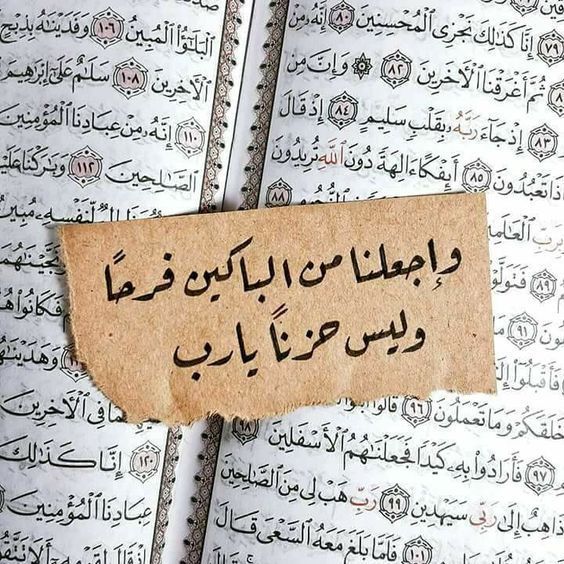 وإجعلنا من الباكين فرحاً
وليس حزناً يارب
٧٩ إِنَّا كَذَٰلِكَ نَجْزِى ٱلْمُحْسِنِينَ ٨٠ إِنَّهُۥ مِنْ
ثُمَّ أَغْرَقْنَا ٱلْأَخَرِينَ ٨٢ ۞ وَإِنَّ مِن
٨٣ إِذْ جَآءَ رَبَّهُۥ بِقَلْبٍ سَلِيمٍ ٨٤ إِذْ قَالَ
تَعْبُدُونَ ٨٥ أَئِفْكًا ءَالِهَةً دُونَ ٱللَّهِ تُرِيدُونَ
بِرَبِّ ٨٨
٨٩
٩١
خَلَقَكُمْ وَمَا تَعْمَلُونَ ٩٦ قَالُوا۟
٩٧ فَأَرَادُوا۟ بِهِۦ كَيْدًا فَجَعَلْنَٰهُمُ ٱلْأَسْفَلِينَ ٩٨
ذَاهِبٌ إِلَىٰ رَبِّى سَيَهْدِينِ ٩٩ رَبِّ هَبْ لِى مِنَ ٱلصَّٰلِحِينَ
١٠١ فَلَمَّا بَلَغَ مَعَهُ ٱلسَّعْىَ قَالَ
ٱلْبَلَٰٓؤُا۟ ٱلْمُبِينُ ١٠٦ وَفَدَيْنَٰهُ بِذِبْحٍ
ٱلْأَخِرِينَ ١٠٨ سَلَٰمٌ عَلَىٰٓ إِبْرَٰهِيمَ
١١٠ إِنَّهُۥ مِنْ عِبَادِنَا ٱلْمُؤْمِنِينَ
ٱلصَّٰلِحِينَ ١١٢ وَبَٰرَكْنَا
لِّنَفْسِهِۦ مُبِينٌ
فَكَانُوا۟
فِى ٱلْأَخِرِينَ
١٢٠ إِنَّا كَذَٰلِكَ
عِبَادِنَا ٱلْمُؤْمِنِينَ
إِذْ قَالَ لِقَوْمِهِۦٓ أَلَا